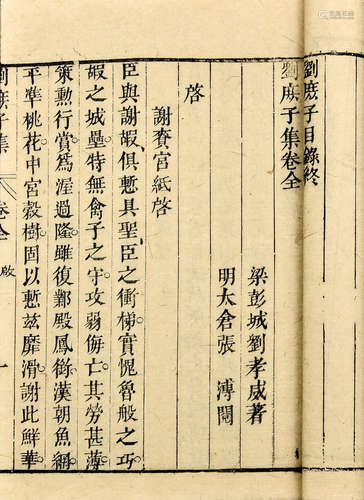 劉庶子目錄終
劉庶子集卷全
梁彭城劉孝威著
明太倉張溥閱
啓
謝賚宮紙啓
臣與謝嘏俱慙具聖臣之衝梯實愧魯般之巧
嘏之城壘特無禽子之守攻弱侮亡其勞甚薄
策勲行賞爲渥過隆雖復鄴殿鳳銜漢朝魚網
平準桃花中宮縠樹固以慙兹靡滑謝此鮮華
劉庶子集
卷全
啟
一